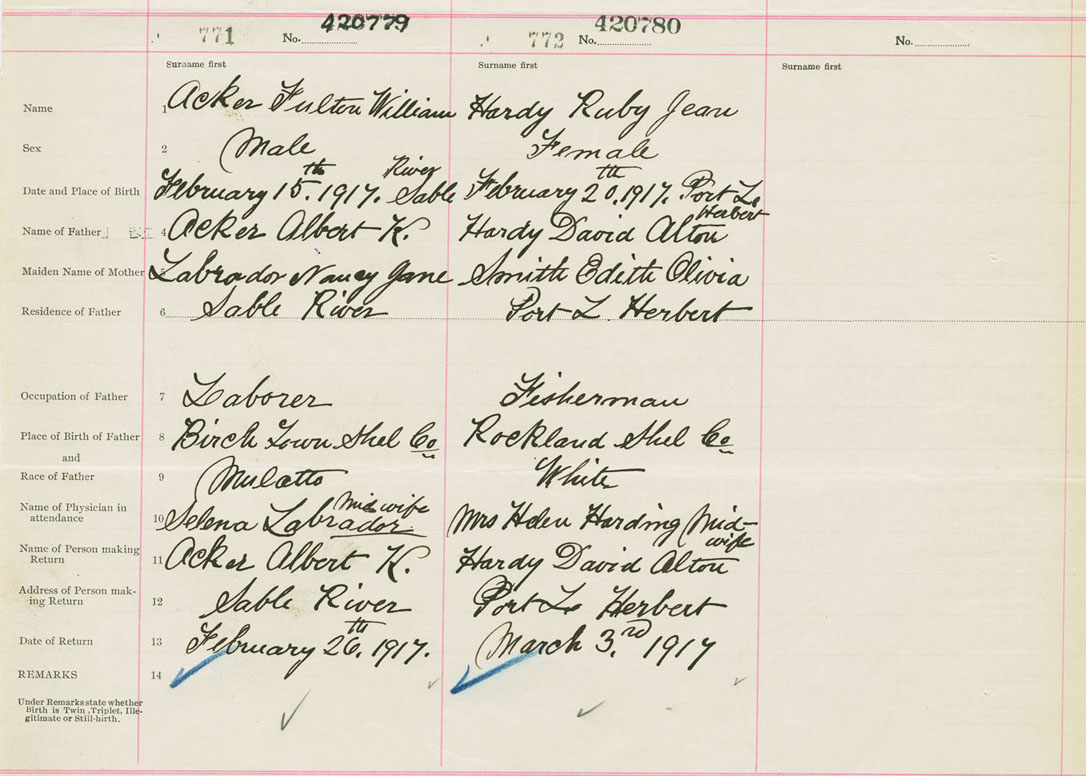 771 No. 420779 772 No. 420780 No.
Surname first Surname first Surname first
Name 1 Acker Fulton William Hardy Ruby Jean
Sex 2 Male Female
Date and Place of Birth February 15th. 1917. River Sable February 20th. 1917. Port L. Herbert
Name of Father 4 Acker Albert K. Hardy David Alton
Maiden Name of Mother 5 Labrador Nancy Jane Smith Edith Olivia
Residence of Father 6 Sable River Port L. Herbert
Occupation of Father 7 Laborer Fisherman
Place of Birth of Father 8 Birch Town Shel Co Rockland Shel Co
and
Race of Father 9 Mulatto White
Name of Physician in
attendance 10 Selena Labrador Midwife Mrs Helen Harding Mid-
wife
Name of Person making
Return 11 Acker Albert K. Hardy David Alton
Address of Person mak-
ing Return 12 Sable River Port L. Herbert
Date of Return 13 February 26th. 1917. March 3rd. 1917
REMARKS 14
Under Remarks state whether
Birth is Twin, Triplet, Ille-
gitimate or Still-birth.